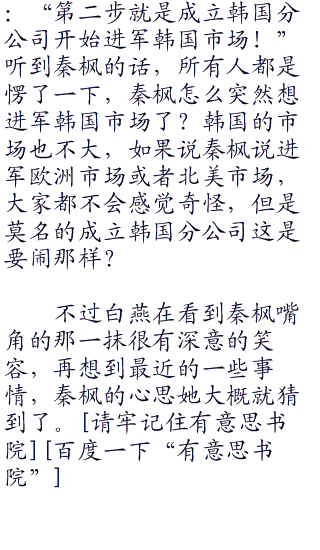 ：“第二步就是成立韩国分
公司开始进军韩国市场！”
听到秦枫的话，所有人都是
愣了一下，秦枫怎么突然想
进军韩国市场了？韩国的市
场也不大，如果说秦枫说进
军欧洲市场或者北美市场，
大家都不会感觉奇怪，但是
莫名的成立韩国分公司这是
要闹那样？
不过白燕在看到秦枫嘴
角的那一抹很有深意的笑
容，再想到最近的一些事
情，秦枫的心思她大概就猜
到了。[请牢记住有意思书
院][百度一下“有意思书
院”]